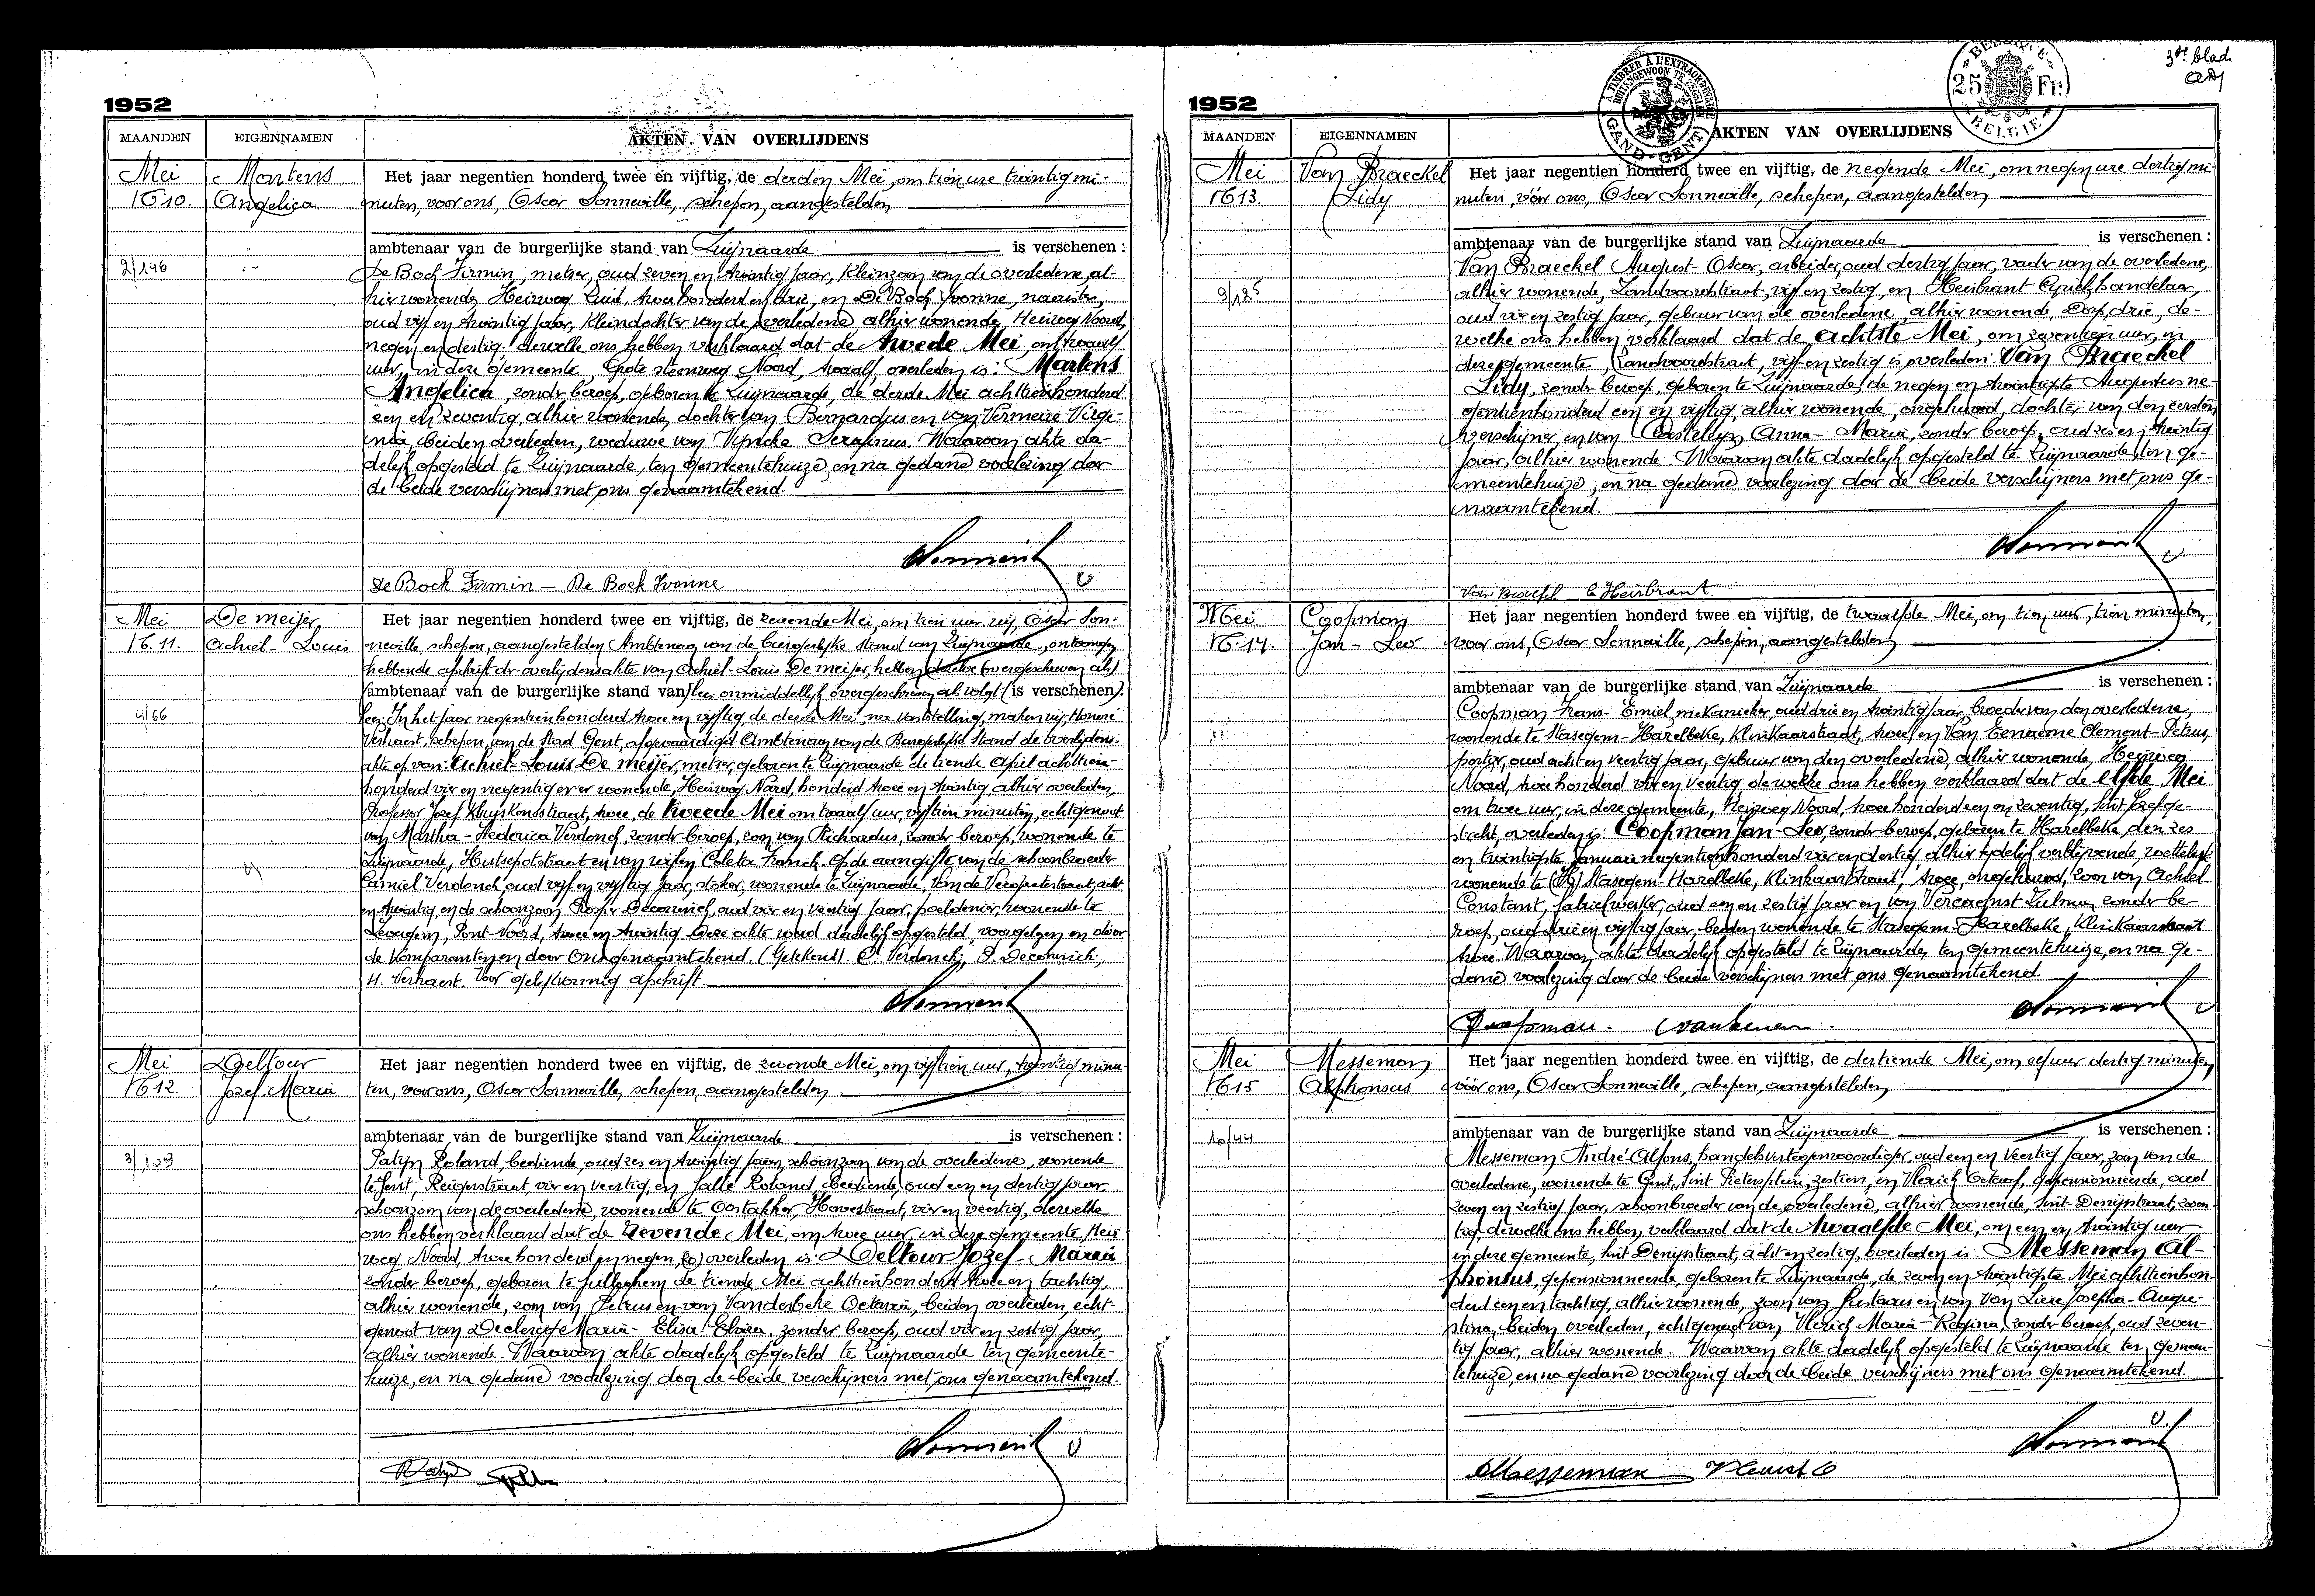 1952
MAANDEN EIGENNAMEN AKTEN VAN OVERLIJDENS
Mei
16 10.
Martens
Angelica
2/146
Het jaar negentien honderd twee en vijftig, de derden Mei, om tien ure twintig mi-
nuten, voor ons, Oscar Sonneville, schepen, aangestelden
ambtenaar van de burgerlijke stand van Zwijnaarde is verschenen :
De Bock Firmin, metser, oud zeven en twintig jaar, kleinzoon van de overledene al-
hier wonende, Heirweg Zuid, twee honderd en drie, en De Bock Yvonne, naaister,
oud vijf en twintig jaar, kleindochter van de overledene, alhier wonende, Heirweg Noord,
negen en dertig, dewelke ons hebben verklaard dat de tweede Mei, om twaalf
uur, in deze gemeente, Grote steenweg Noord, twaalf, overleden is: Martens
Angelica, zonder beroep, geboren te Zwijnaarde, de derde Mei achttienhonderd
een en zeventig, alhier wonende, dochter van Bernardus en van Vermeire Virge-
nia, beiden overleden, weduwe van Serafinus. Waarvan akte da-
delijk opgesteld te Zwijnaarde, ten gemeentehuize, en na gedane voorlezing door
de beide verschijners met ons genaamtekend.
De Bock Firmin — De Bock Yvonne
Mei
16.11.
De meijer
Achiel-Louis
4/66
Het jaar negentien honderd twee en vijftig, de zevende Mei, om tien uur wij Oscar Son-
neville, schepen, aangestelden Ambtenaar van de burgerlijke stand van Zwijnaarde, ontvangen
hebbende afschrift der overlijdensakte van Achiel-Louis De meijer, hebben dezelve (overgeschreven als)
(ambtenaar van de burgerlijke stand van) hier onmiddellijk overgeschreven als volgt: (is verschenen).
In het jaar negentienhonderd twee en vijftig, de derde Mei, na vaststelling, maken wij, Honoré
Verhaert, schepen van de Stad Gent, afgevaardigd Ambtenaar van de Burgerlijke Stand de overlijdens-
akte op van: Achiel-Louis De meijer, metser, geboren te Zwijnaarde de tiende April achttien-
honderd vier en negentig er wonende, Heirweg Noord, honderd twee en twintig alhier overleden,
Professor Jozef Kluyskensstraat, twee, de tweede Mei om twaalf uur vijftien minuten, echtgenoot
van Martha-Frederica Verdonck, zonder beroep, zoon van Richardus, zonder beroep, wonende te
Zwijnaarde, Hutsepotstraat en van wijlen Coleta Franck. Op de aangifte van de schoonbroeder
Camiel Verdonck, oud vijf en vijftig jaar, stoker, wonende te Zwijnaarde, straat, acht
en twintig, en de schoonzoon Deconinck, oud vier en veertig jaar, wonende te
twee en twintig. Deze akte werd dadelijk opgesteld, voorgelezen en door
de komparanten en door Ons genaamtekend. (Getekend). C. Verdonck; Deconinck;
H. Verhaert. Voor gelijkvormig afschrift.
Mei
16 12.
Deltour
Jozef Maria
3/109
Het jaar negentien honderd twee en vijftig, de zevende Mei, om vijftien uur, twintig minu-
ten, voor ons, Oscar Sonneville, schepen, aangestelden
ambtenaar van de burgerlijke stand van Zwijnaarde is verschenen :
Patijn Roland, bediende, oud zes en twintig jaar, schoonzoon van de overledene, wonende
te Gent, Reigerstraat, vier en veertig, en Roland, bediende, oud een en dertig jaar
schoonzoon van de overledene, wonende te Oostakker, straat, vier en veertig, dewelke
ons hebben verklaard dat de zevende Mei, om twee uur, in deze gemeente, Heir-
weg Noord, twee honderd en negen overleden is: Deltour Jozef-Maria
zonder beroep, geboren te de tiende Mei achttienhonderd twee en tachtig,
alhier wonende, zoon van Petrus en van Vanderbeke Octavia, beiden overleden, echt-
genoot van Declercq Maria-Elisa-Elvira, zonder beroep, oud vier en zestig jaar,
alhier wonende. Waarvan akte dadelijk opgesteld te Zwijnaarde ten gemeente-
huize, en na gedane voorlezing door de beide verschijners met ons genaamtekend.
3de blad
BELGIQUE
25 Fr.
BELGIE
A TIMBRER À L'EXTRAORDINAIRE
BUITENGEWOON TE ZEGELEN
GAND-GENT
1952
MAANDEN EIGENNAMEN AKTEN VAN OVERLIJDENS
Mei
16 13.
Van Braeckel
Lidy
9/125
Het jaar negentien honderd twee en vijftig, de negende Mei, om negen ure dertig mi-
nuten, vóór ons, Oscar Sonneville, schepen, aangestelden
ambtenaar van de burgerlijke stand van Zwijnaarde is verschenen :
Van Braeckel August-Oscar, arbeider, oud dertig jaar, vader van de overledene,
alhier wonende, Zandvoordestraat, vijf en zestig, en Heirbrant Cyriel, handelaar,
oud vier en zestig jaar, gebuur van de overledene, alhier wonende, Dorp, drie, de-
welke ons hebben verklaard dat de achtste Mei, om zeventien uur, in
deze gemeente, Zandvoordestraat, vijf en zestig is overleden: Van Braeckel
Lidy, zonder beroep, geboren te Zwijnaarde, de negen en twintigste Augustus ne-
gentienhonderd een en vijftig, alhier wonende, ongehuwd, dochter van den eersten
verschijner en van Casteleyn Anna-Maria, zonder beroep, oud zes en twintig
jaar, alhier wonende. Waarvan akte dadelijk opgesteld te Zwijnaarde, ten ge-
meentehuize, en na gedane voorlezing door de beide verschijners met ons ge-
naamtekend.
Van Braeckel C Heirbrant
Mei
16.14.
Coopman
Jan-Leo
Het jaar negentien honderd twee en vijftig, de twaalfde Mei, om tien uur, tien minuten,
voor ons, Oscar Sonneville, schepen, aangestelden
ambtenaar van de burgerlijke stand van Zwijnaarde is verschenen :
Coopman Frans-Emiel, mekanieker, oud drie en twintig jaar, broeder van den overledene,
wonende te Stasegem-Harelbeke, Klinkaardstraat, twee, en Van Eenaeme Clement-Petrus,
portier, oud acht en veertig jaar, gebuur van den overledene, alhier wonende, Heirweg
Noord, twee honderd vier en veertig dewelke ons hebben verklaard dat de elfde Mei
om twee uur, in deze gemeente, Heirweg Noord, twee honderd een en zeventig, Sint Jozefge-
sticht, overleden is: Coopman Jan-Leo, zonder beroep, geboren te Harelbeke, den zes
en twintigste Januari negentienhonderd vier en dertig alhier tijdelijk verblijvende, wettelijk
wonende te Stasegem-Harelbeke, Klinkaardstraat, twee, ongehuwd, zoon van Achiel
Constant, fabriekwerker, oud een en zestig jaar en van Vercaemst Zulma, zonder be-
roep, oud drie en vijftig jaar, beiden wonende te Stasegem-Harelbeke, Klinkaardstraat
twee. Waarvan akte dadelijk opgesteld te Zwijnaarde, ten gemeentehuize, en na ge-
dane voorlezing door de beide verschijners met ons genaamtekend
Mei
16 15
Messeman
Alphonsus
10/44
Het jaar negentien honderd twee en vijftig, de dertiende Mei, om elf uur dertig minuten,
vóór ons, Oscar Sonneville, schepen, aangestelden
ambtenaar van de burgerlijke stand van Zwijnaarde is verschenen :
Messeman André Alfons, handelsvertegenwoordiger, oud een en veertig jaar, zoon van de
overledene, wonende te Gent, Sint Pietersplein, zestien, en Vlerick Octaaf, gepensionneerde, oud
zeven en zestig jaar, schoonbroeder van de overledene, alhier wonende, Sint-Denijsstraat, zeven-
tig, dewelke ons hebben verklaard dat de twaalfde Mei, om een en twintig uur
in deze gemeente, Sint Denijsstraat, acht en zestig, overleden is: Messeman Al-
phonsus, gepensionneerde, geboren te Zwijnaarde, de zeven en twintigste Mei achttienhon-
derd een en tachtig, alhier wonende, zoon van Gustavus en van Van Liere Josepha-Augu-
stina, beiden overleden, echtgenoot van Vlerick Maria-Regina, zonder beroep, oud zeven-
tig jaar, alhier wonende. Waarvan akte dadelijk opgesteld te Zwijnaarde ten gemeen-
tehuize, en na gedane voorlezing door de beide verschijners met ons genaamtekend.
AMesseman Vlerick O